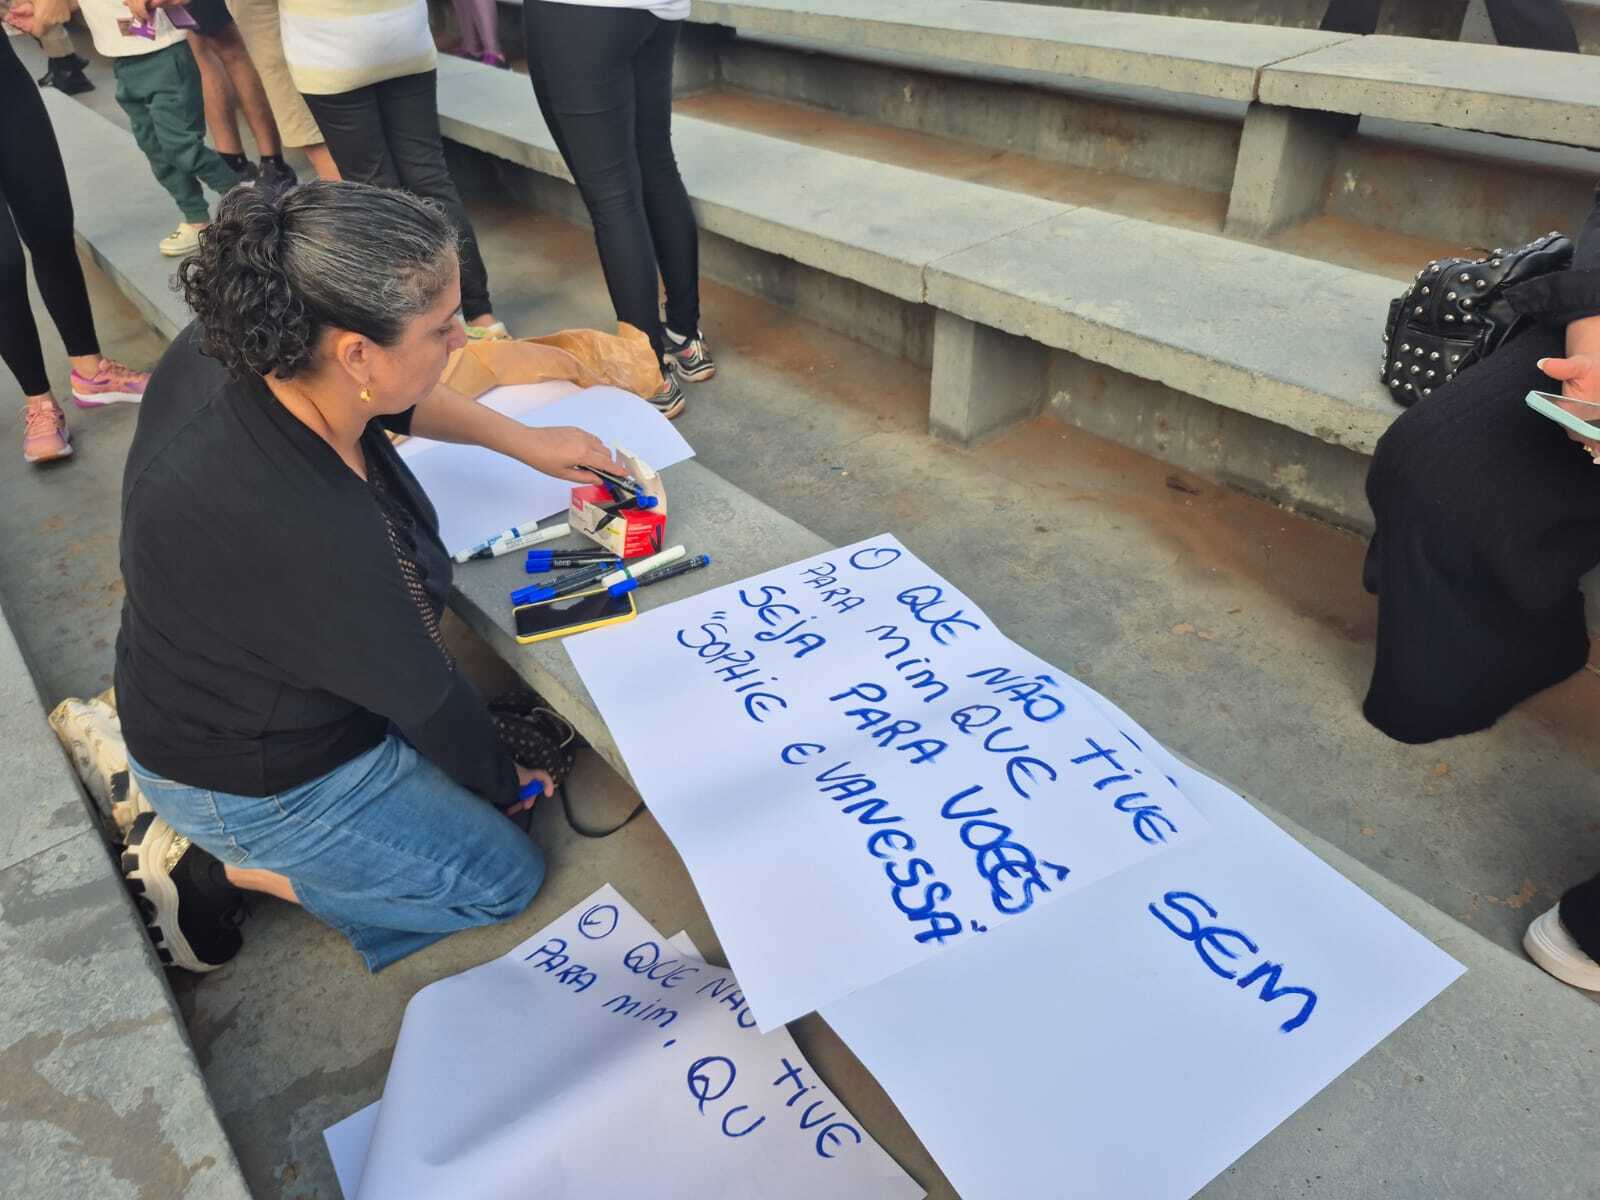 O QUE NÃO TIVE
PARA MIM QUE
SEJA PARA VOCÊS
"SOPHIE E VANESSA"
SEM
O QUE NÃO TIVE
PARA MIM, QU